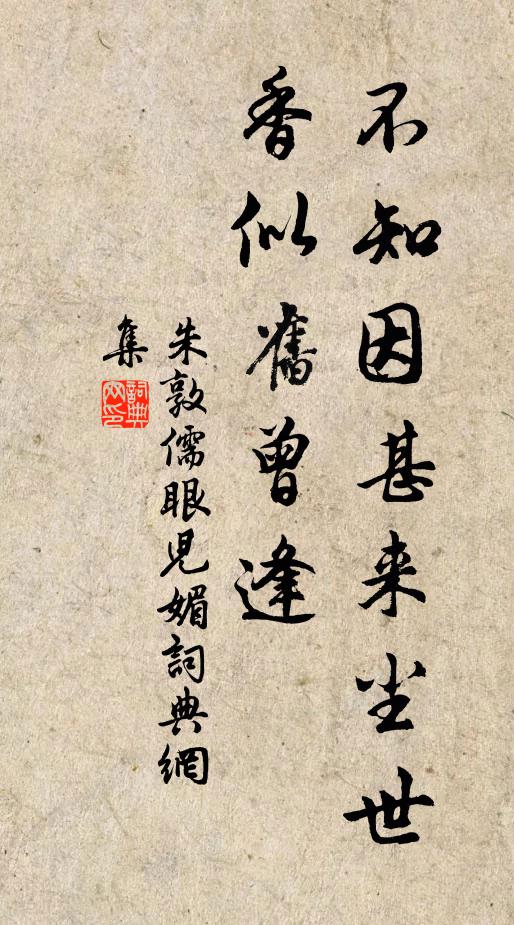 不知因甚来尘世
香似舊曾逢
朱敦儒眼児媚詞典網
集
詞典
网印